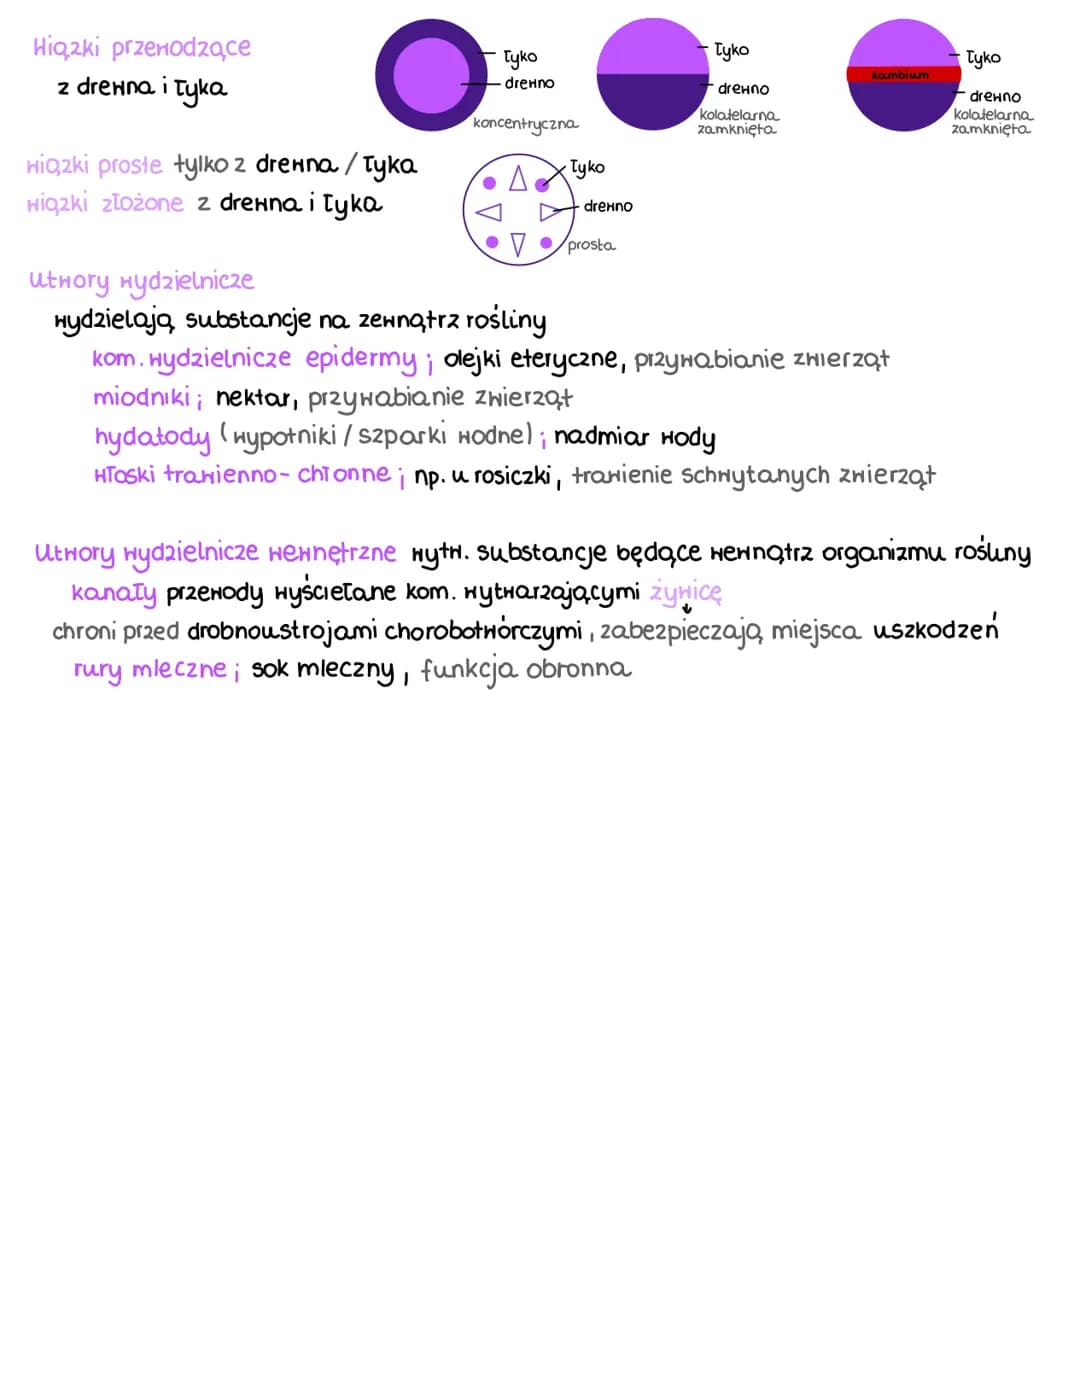 Wiązki przewodzące
z drewna i łyka
łyko
drewno
koncentryczna
łyko
drewno
kolatelarna
zamknięta
łyko
kambium
drewno
kolatelarna
zamknięta
wiązki proste tylko z drewna / łyka
wiązki złożone z drewna i łyka
łyko
drewno
prosta
Utwory wydzielnicze
wydzielają substancje na zewnątrz rośliny
kom. wydzielnicze epidermy ; olejki eteryczne, przywabianie zwierząt
miodniki ; nektar, przywabianie zwierząt
hydatody (wypotniki / szparki wodne) ; nadmiar wody
włoski trawienno-chłonne ; np. u rosiczki, trawienie schwytanych zwierząt
Utwory wydzielnicze wewnętrzne wytw. substancje będące wewnątrz organizmu rośliny
kanały przewody wyściełane kom. wytwarzającymi żywicę
chroni przed drobnoustrojami chorobotwórczymi, zabezpieczają miejsca uszkodzeń
rury mleczne ; sok mleczny, funkcja obronna